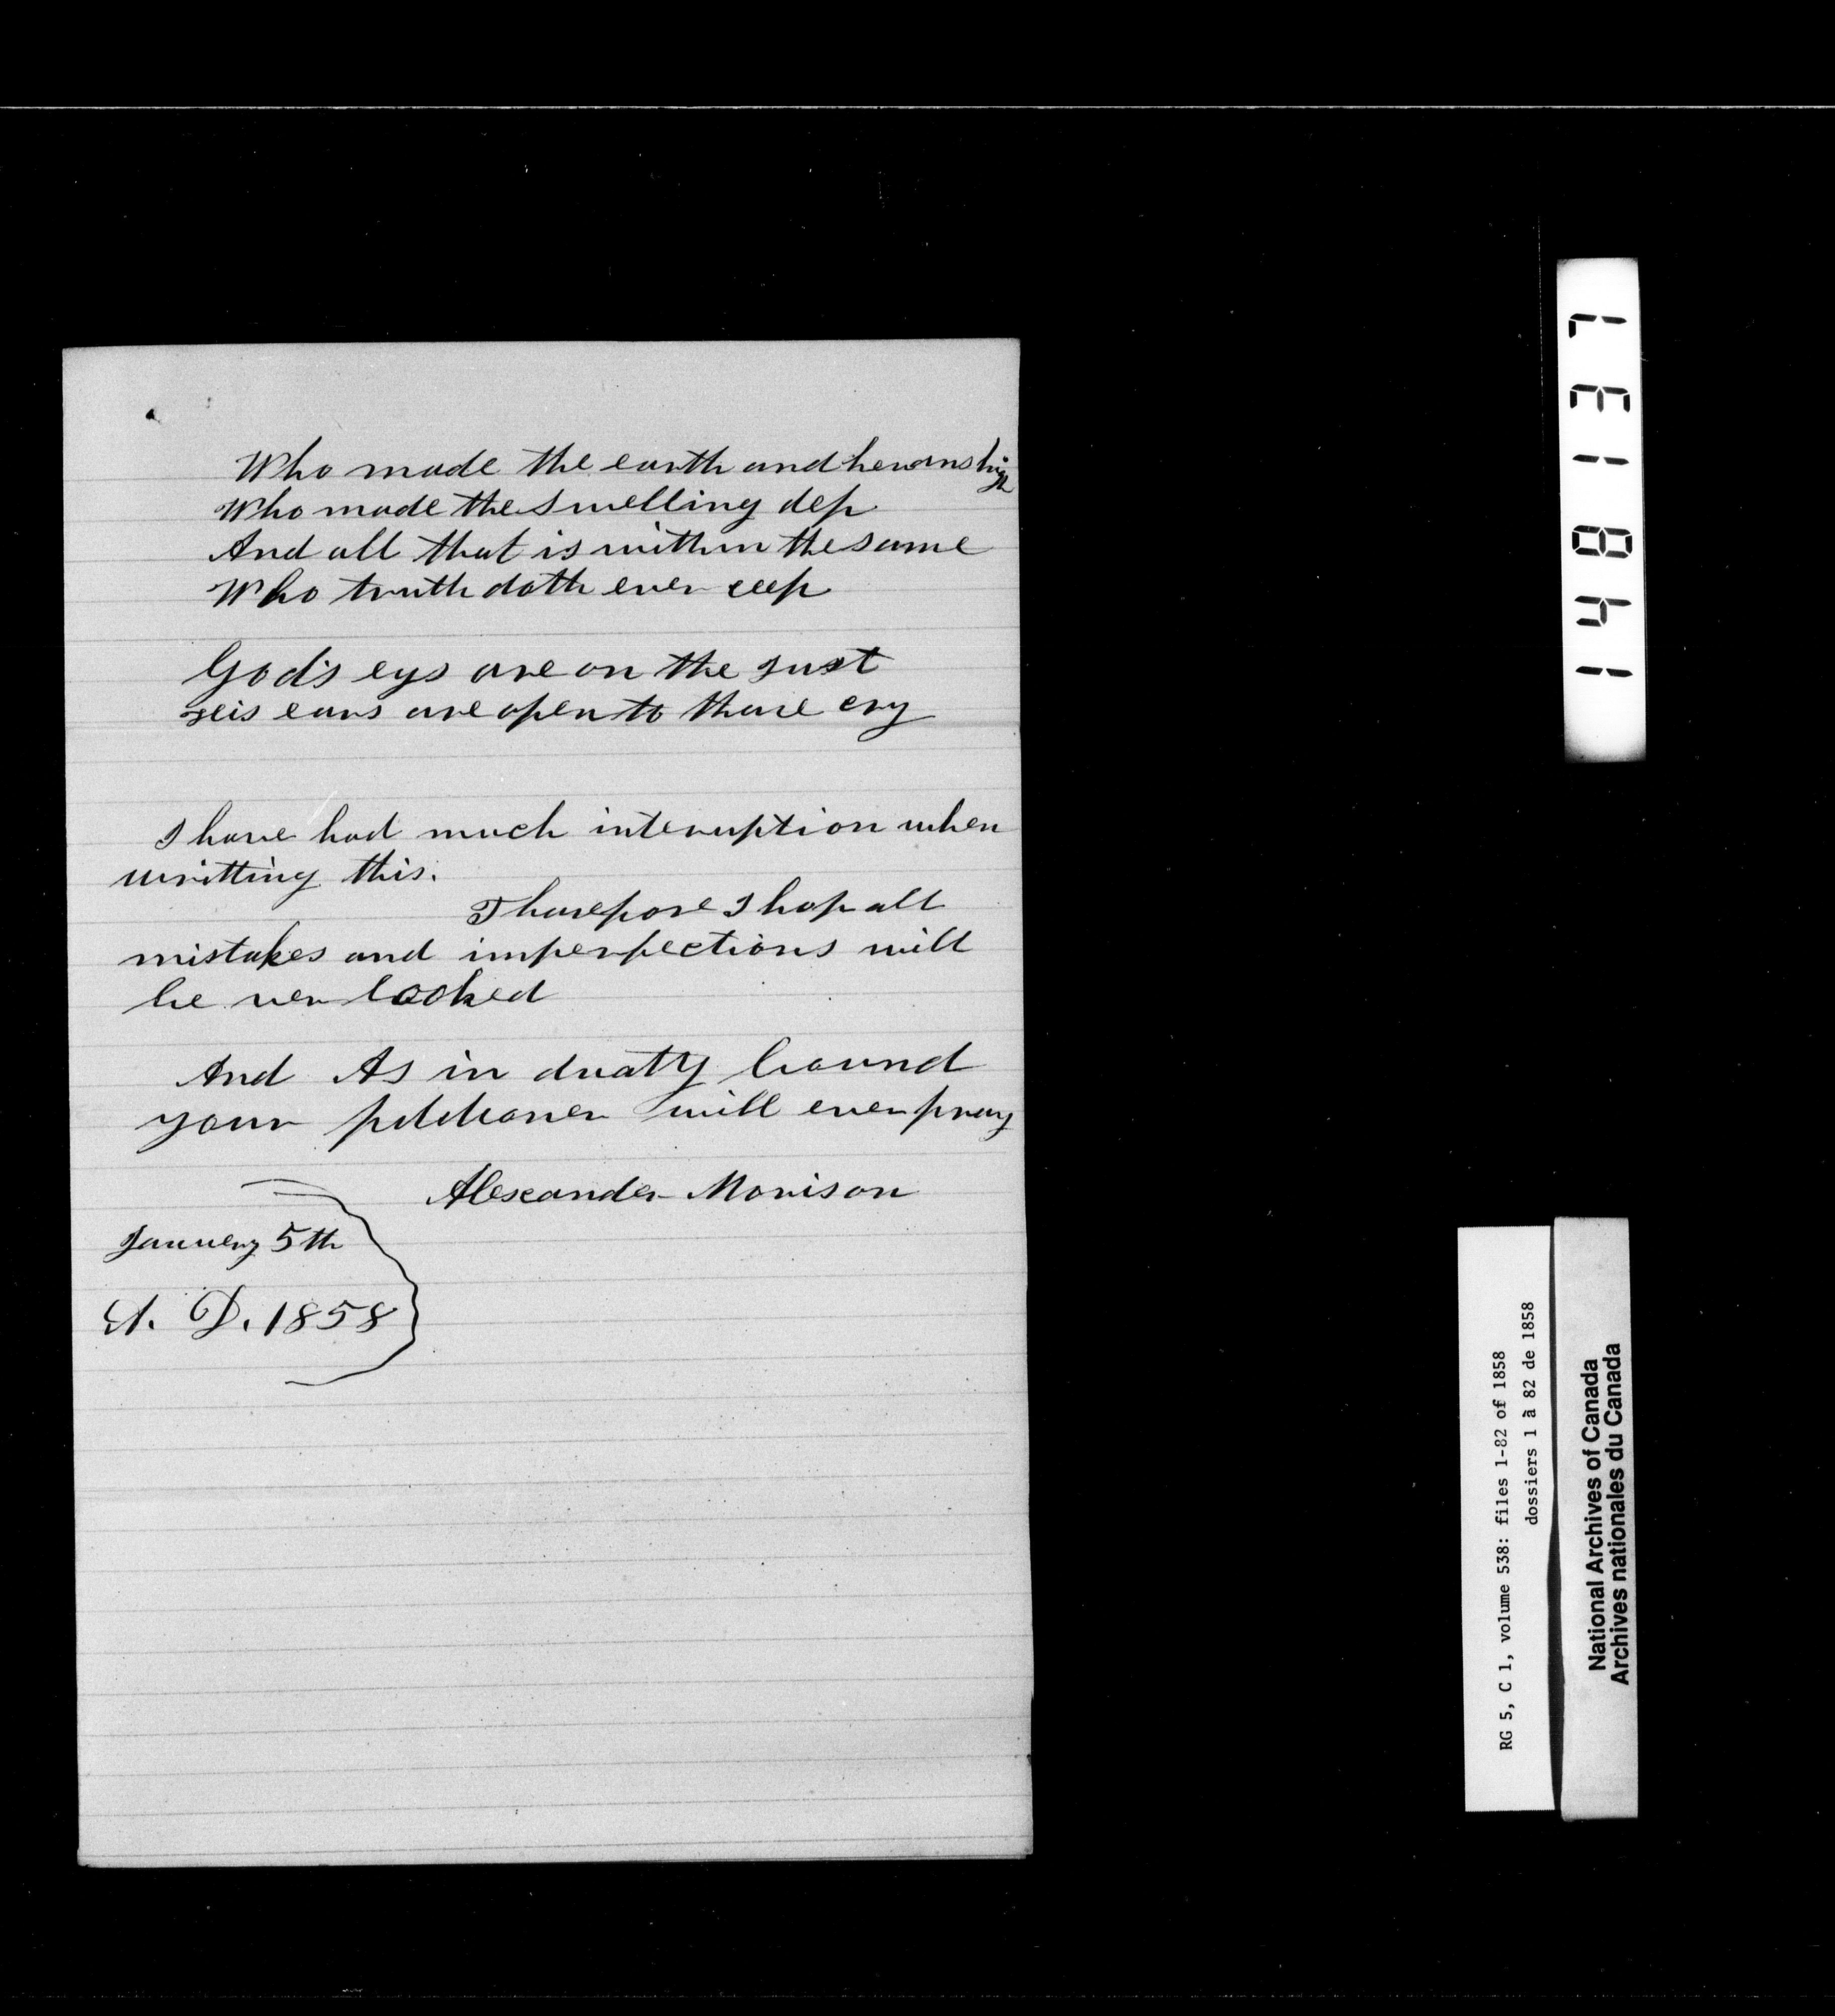 Who made the earth and hevans high
Who made the swelling dep
And all that is within the same
Who truth doth ever ceep
God's eys are on the just
heis ears are open to thare cry
I have had much interuption when
writting this.
Tharefore I hop all
mistakes and imperfections will
be ver looked
And As in duaty bound
your petitioner will ever pray
Alexander Morison
January 5th
A. D. 1858
148137
RG 5, C 1, volume 538: files 1-82 of 1858
dossiers 1 à 82 de 1858
National Archives of Canada
Archives nationales du Canada